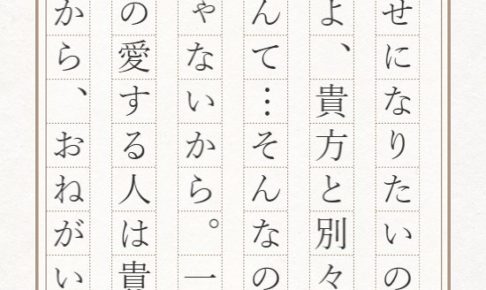 せになりたいの
よ、貴方と別々
んて…そんなの
ゃないから。一
の愛する人は貴
から、おねがい